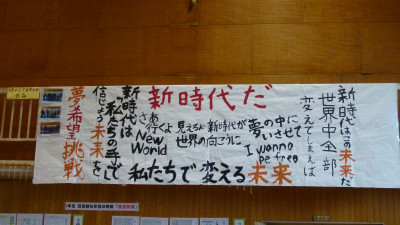 新時代だ
新時代はこの未来だ
世界中全部
変えてしまえば
夢の中に
いさせて
I wanna
be free
見えるよ新時代が
世界の向こうに
さあ
行くよ
New
World
新時代は
私たちの手で
信じよう未来を
夢希望挑戦
私たちで変える未来